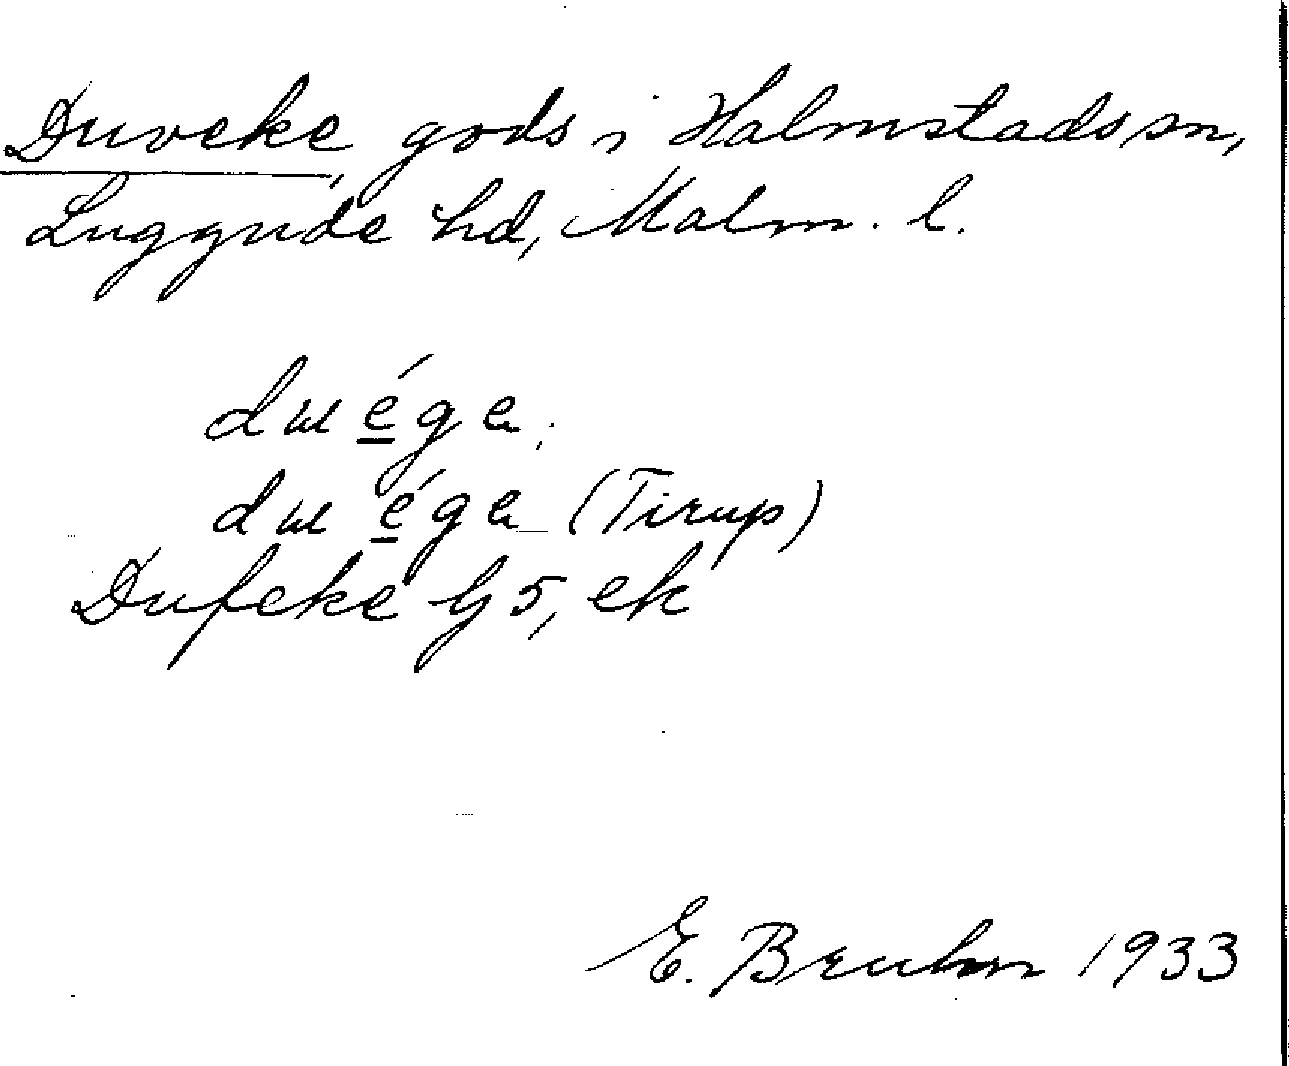 Duveke, gods i Halmstads sn,
Luggude hd, Malm. l.
duéga,
du éga (Tirup)
Dufeke Gj 5, ek
E. Bruhn 1933